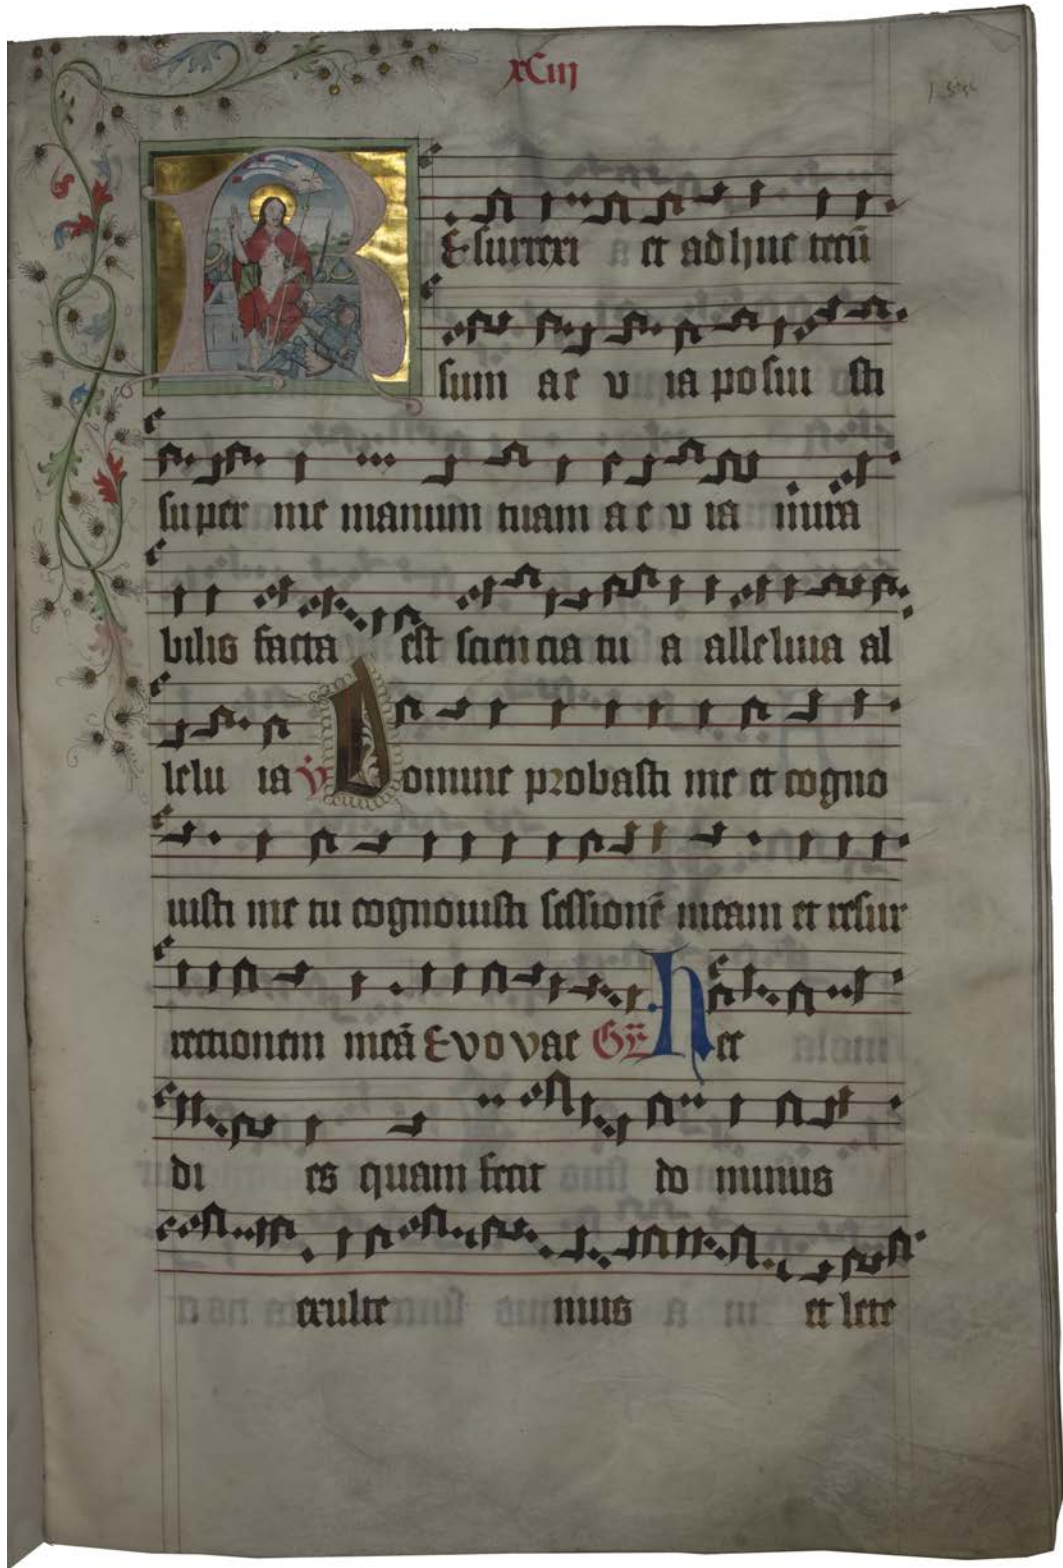 xCiij
REsurrexi et adhuc tecū
sum ae v ia posui sti
super me manum tuam a e v ia mira
bilis facta est sciencia tu a alleluia al
lelu ia V Domine probasti me et cogno
uisti me tu cognouisti sessionē meam et resur
rectionem meā Evovae Gr Hec
di es quam fecit do minus
exulte mus et lete